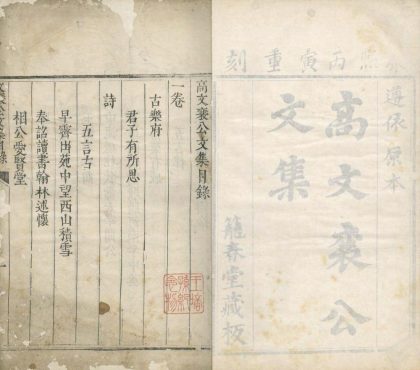 康熙丙寅重刻
遵依原本
高文襄公
文集
籠春堂藏板
高文襄公文集目錄
一卷
古樂府
君子有所思
詩
五言古
早霽出苑中望西山積雪
奉詔讀書翰林述懷
相公愛賢堂